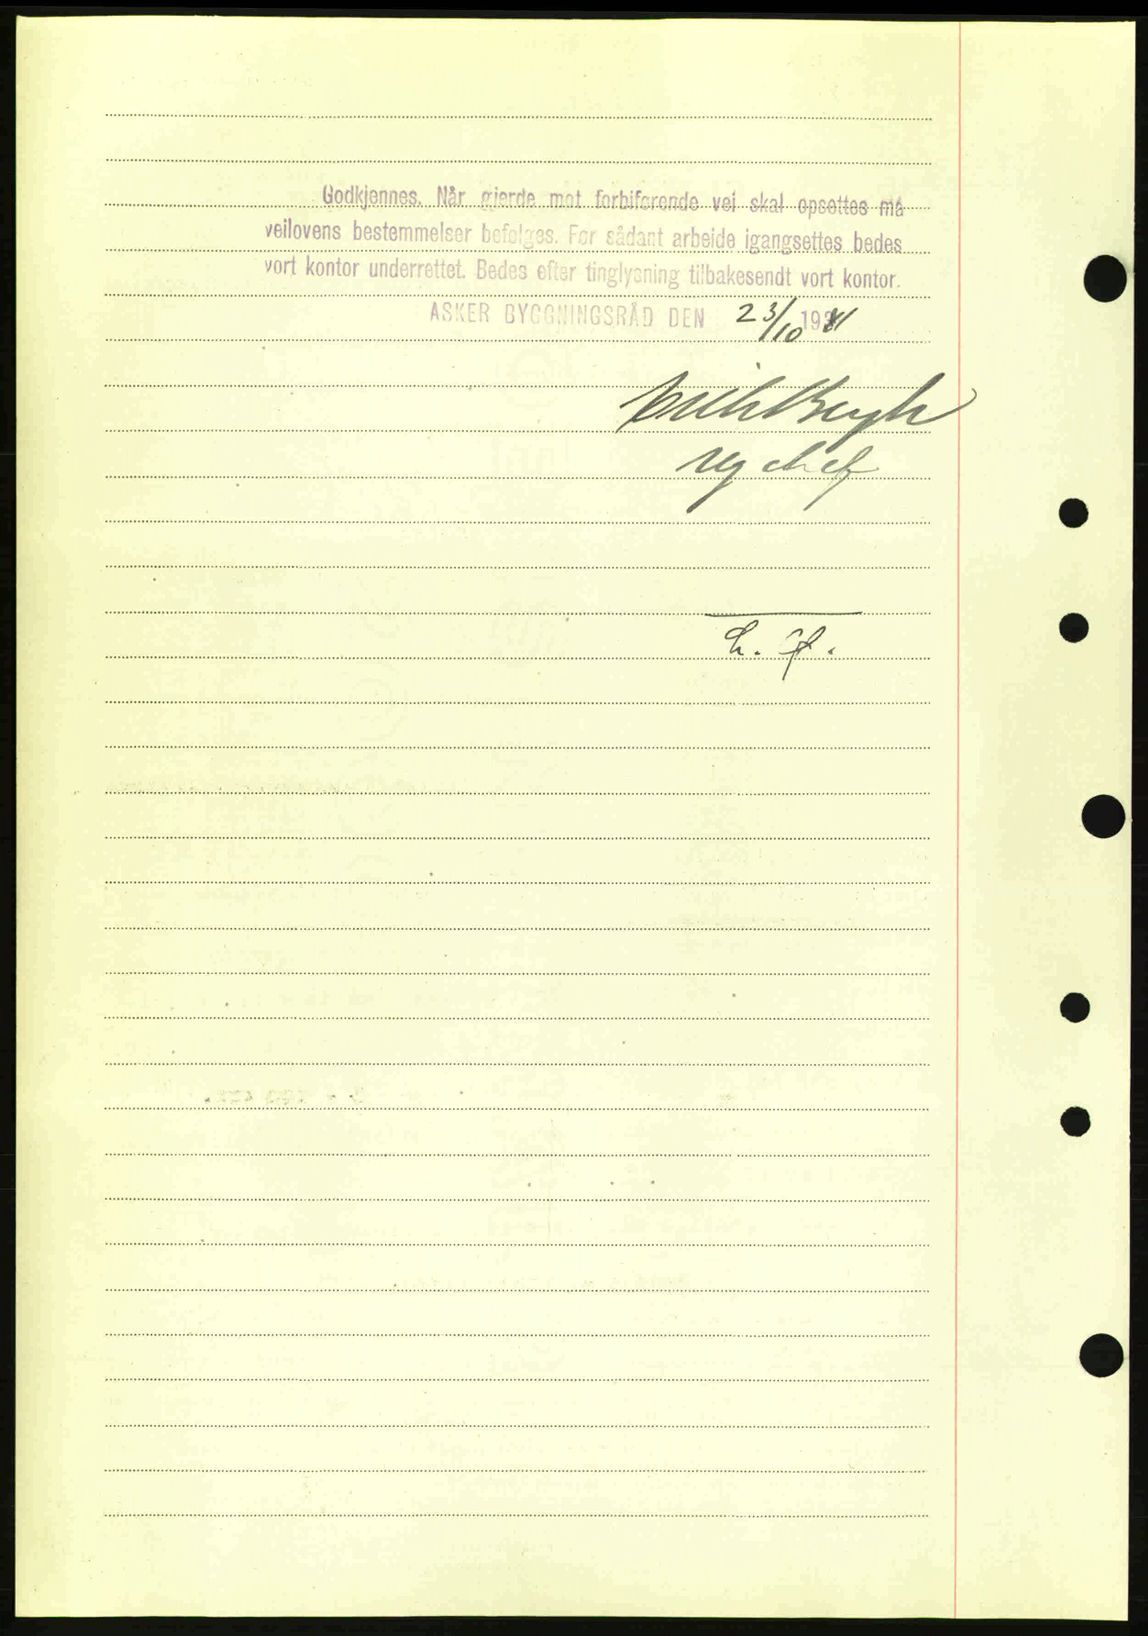 Godkjennes. Når gjerde mot forbiførende vei skal opsettes må
veilovens bestemmelser befølges. Før sådant arbeide igangsettes bedes
vort kontor underrettet. Bedes efter tinglysning tilbakesendt vort kontor.
ASKER BYGGNINGSRÅD DEN 23/10 1941